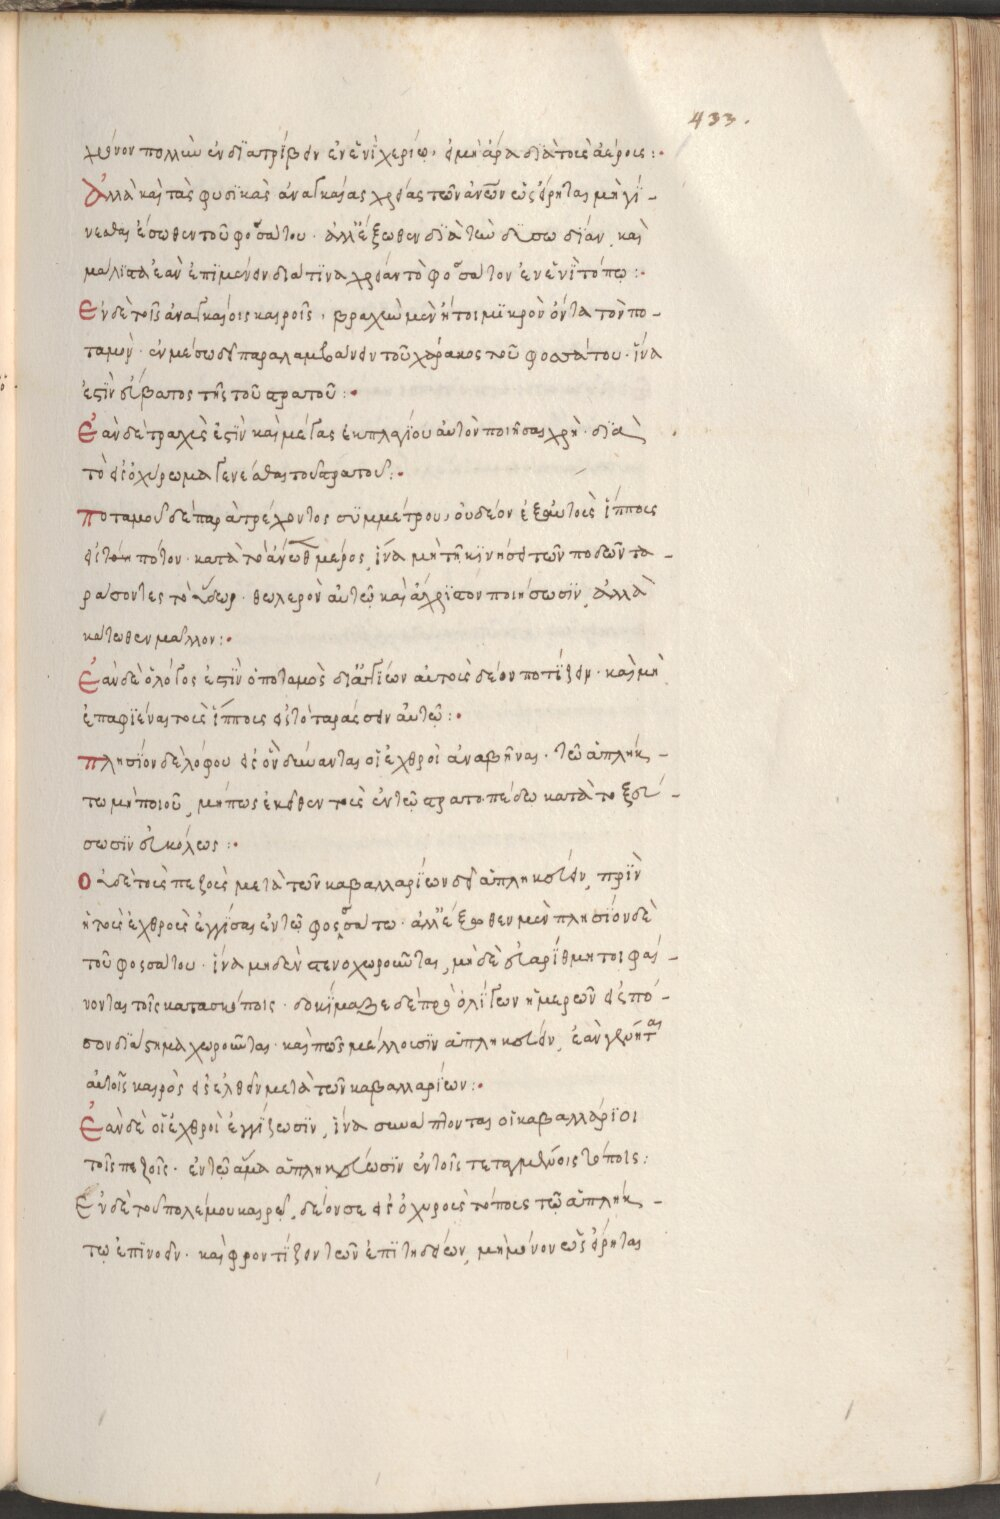 433.
χρόνον πολλὺν ἐνδιατρίβειν ἐν ἑνὶ χωρίῳ, εἰ μὴ ἄρα διὰ τοὺς ἀέρους :·
Ἀλλὰ καὶ τὰς φυσικὰς ἀναγκαίας χρείας τῶν ἀνων εὐς εἴρηται μὴ γί-
νεσθαι ἔσωθεν τοῦ φοσσάτου · ἀλλ' ἔξωθεν διὰ τὴν δυσωδίαν, καὶ
μάλιστα ἐὰν ἐπιμένειν διά τινα χρείαν τὸ φοσσάτον ἐν ἑνὶ τόπῳ :·
Ἐν δὲ τοῖς ἀναγκαίοις καιροῖς, βραχὺν μὲν ἤτοι μικρὸν ὄντα τὸν πο-
ταμὸν · ἐν μέσῳ παραλαμβάνειν τοῦ χάρακος τοῦ φοσσάτου · ἵνα
ἐστὶν εὔβατος τῆς τοῦ στρατοῦ :·
Ἐὰν δὲ τραχὺς ἐστὶν καὶ μέγας ἐκ πλαγίου αὐτὸν ποιῆσαι χρὴ · διὰ
τὸ εἰς ὀχύρωμα γενέσθαι τοῦ στρατοῦ :·
Ποταμοῦ δὲ παρατρέχοντος συμμέτρου, οὐ δέον ἐξ αὐτοὺς ἵππους
εἰς τὸν πότον · κατὰ τὸ ἄνωθεν μέρος, ἵνα μὴ τῇ κινήσει τῶν ποδῶν τα-
ράσοντες τὸ ὕδωρ · θωλερὸν αὐτῷ καὶ ἄχρϊστον ποιήσωσιν, ἀλλὰ
κάτωθεν μᾶλλον :·
Ἐὰν δὲ ὀλόγος ἐστὶν ὁ ποταμὸς δι' ἀγγίων αὐτοὺς δέον ποτίζειν · καὶ μὴ
ἐπαφιέναι τοὺς ἵππους εἰς τὸ ταράσσειν αὐτῷ :·
Πλησίον δὲ λόφου εἰς ὃν δύνανται οἱ ἐχθροὶ ἀναβῆναι · τῷ ἀπλήκ-
τω μὴ ποιοῦ, μήπως ἐκεῖθεν τοὺς ἐν τῷ στρατοπέδω κατὰ το ξεύ-
σωσιν εὐκόλως :·
Οὐ δὲ τοὺς πεζοὺς μετὰ τῶν καβαλλαρίων σὺ ἀπληκεύειν, πρὶν
ἢ τοὺς ἐχθροὺς ἐγγίσαι ἐν τῷ φοσσάτω · ἀλλ' ἔξωθεν μὲν πλησίον δὲ
τοῦ φοσσάτου · ἵνα μηδὲν στενοχωροῦνται, μὴ δὲ εὐαρίθμητοι φαί-
νονται τοῖς κατασκόποις · δοκίμαζε δὲ πρὸ ὀλίγων ἡμερῶν εἰς πό-
σον διάστημα χωροῦνται · καὶ πῶς μέλλουσιν ἀπληκεύειν, ἐὰν γένηται
αὐτοῖς καιρὸς εἰσελθεῖν μετὰ τῶν καβαλλαρίων :·
Ἐὰν δὲ οἱ ἐχθροὶ ἐγγίζωσιν, ἵνα συνάπτονται οἱ καβαλλάριοι
τοῖς πεζοῖς · ἐν τῷ ἅμα ἀπληκεύωσιν ἐν τοῖς τεταγμένοις τόποις :
Ἐν δὲ τοῦ πολέμου καιρῷ, δέον σε εἰς ὀχυροὺς τόπους τῷ ἀπλήκ-
τῳ ἐπινοεῖν · καὶ φροντίζειν τῶν ἐπιτηδείων, μὴ μόνον εὐς εἴρηται